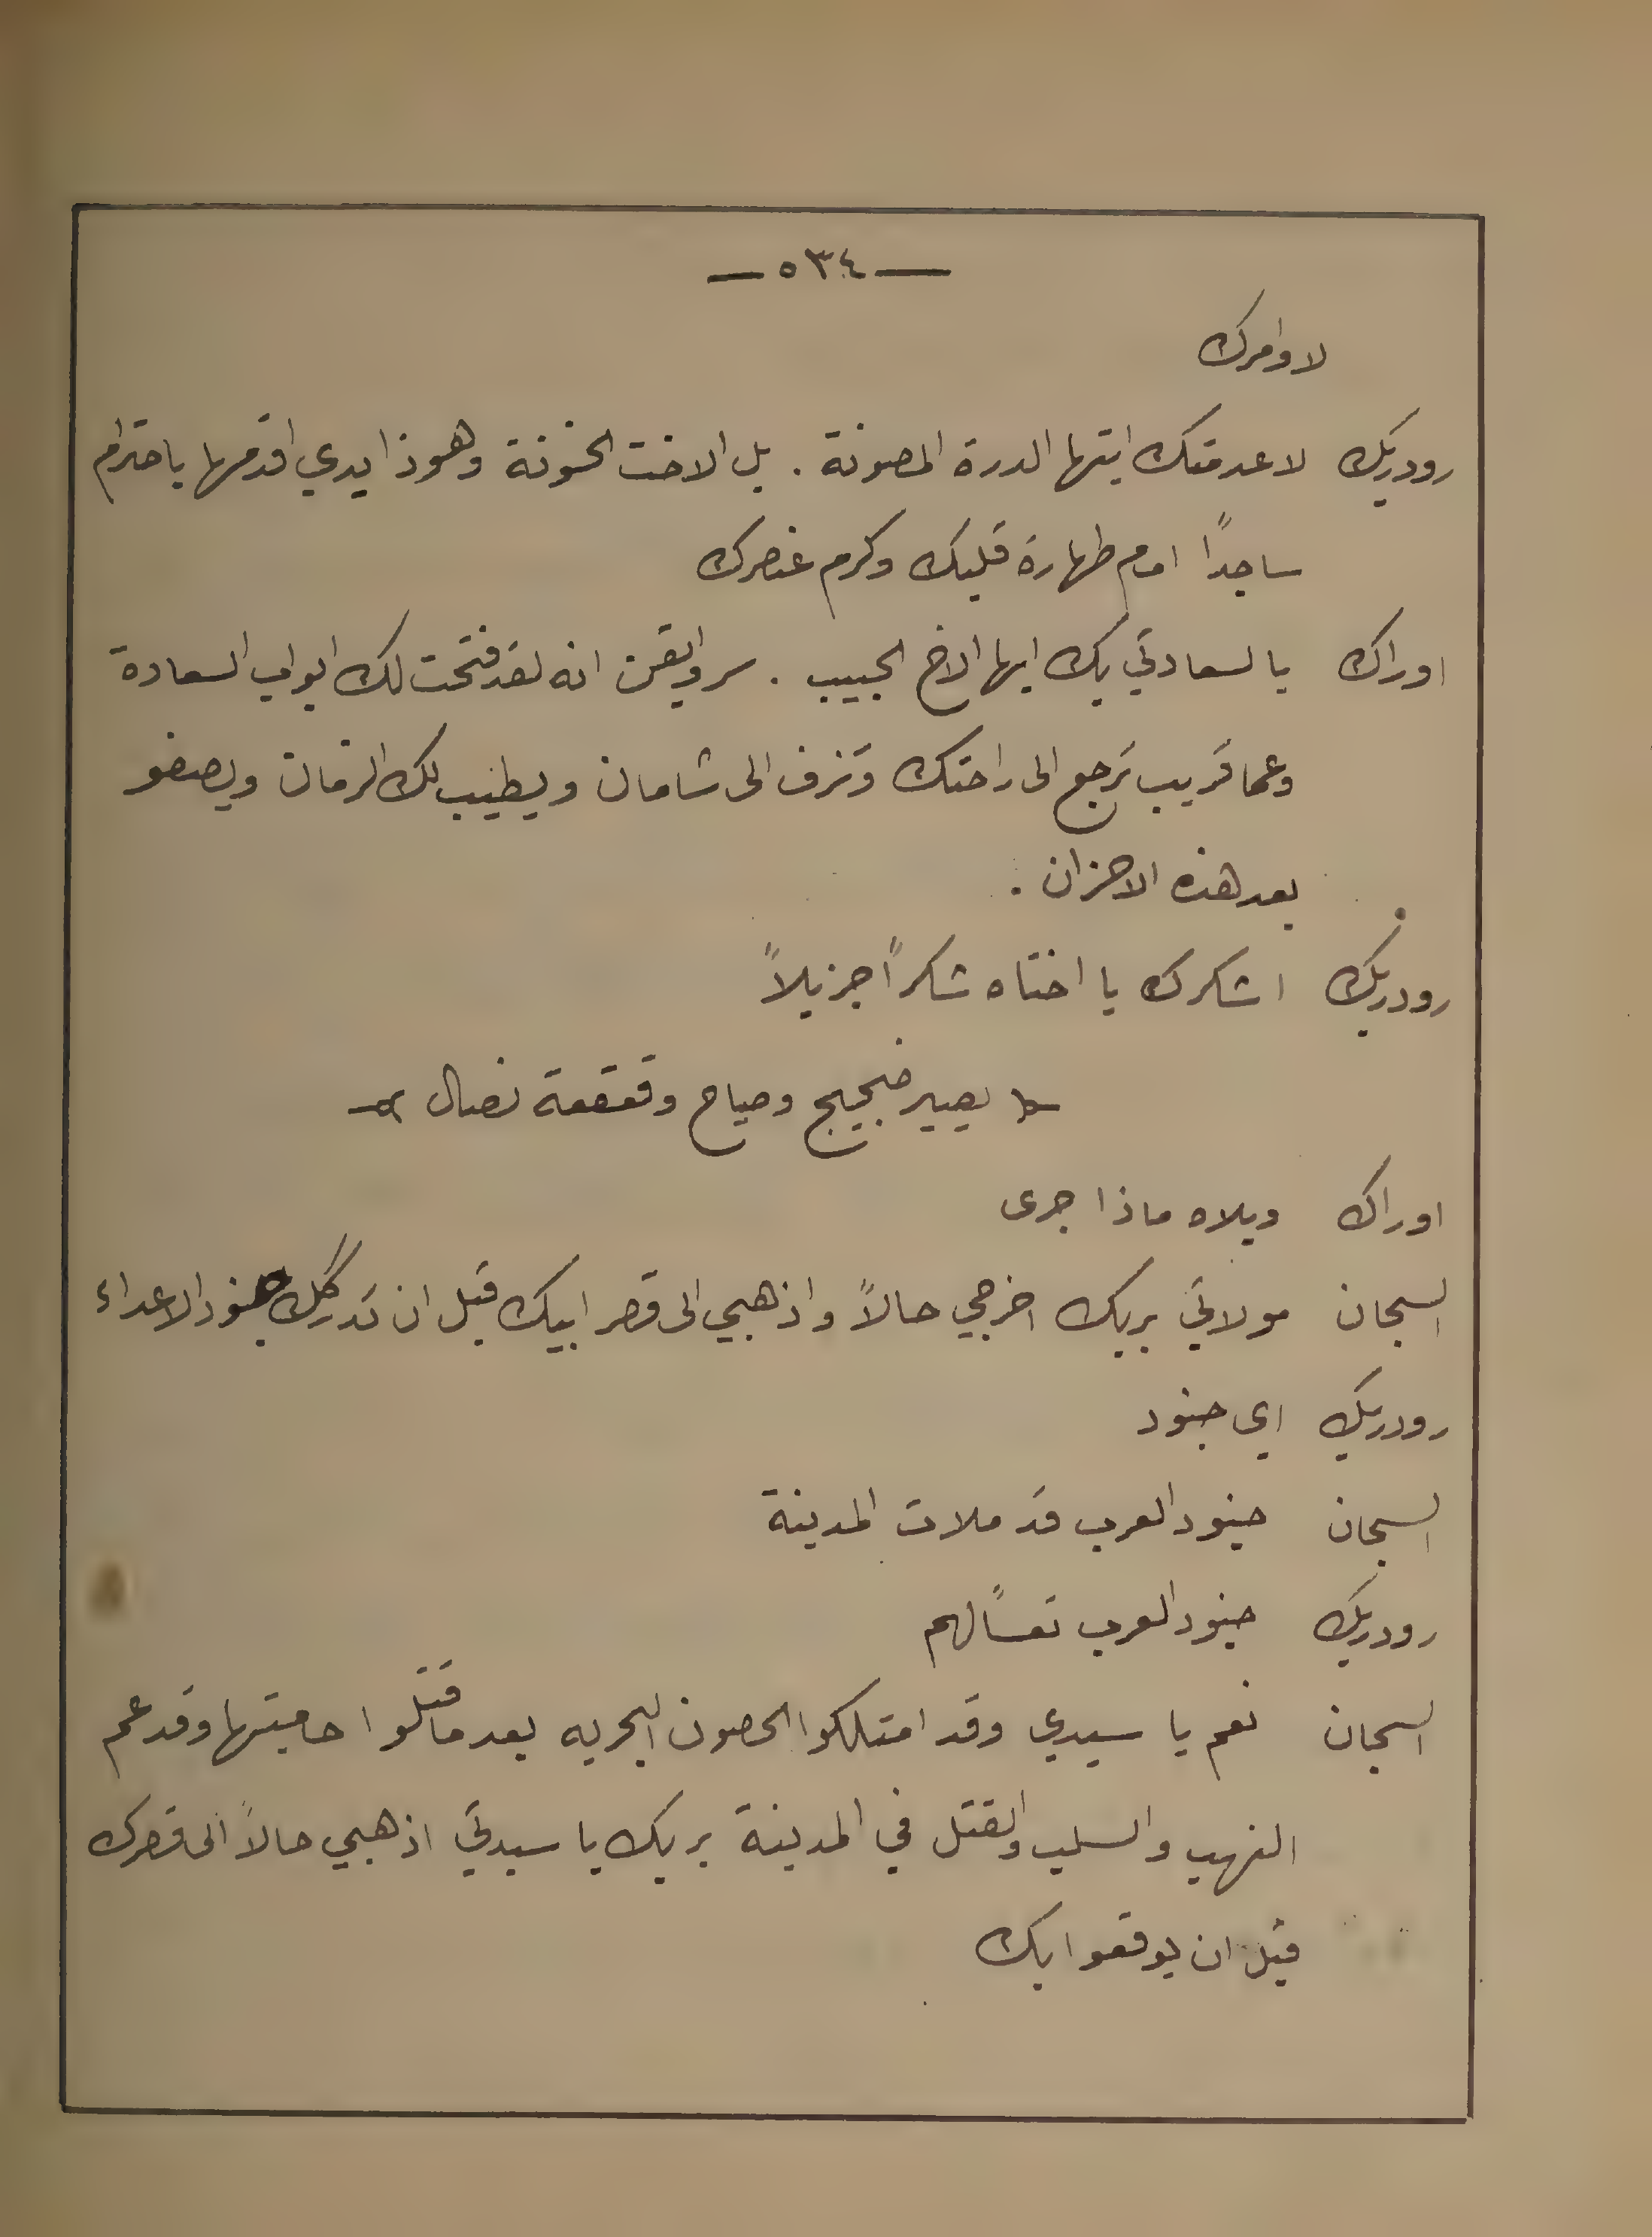 — ٥٣٤ —
لاوامرك
رودريك لا عدمتك ايتها الدرة المصونة . بل الاخت الحنونة وهوذا يدي اقدمها باحترام
ساجداً امام طهارة قلبك وكرم عنصرك
اوراك يالسعادتي بك ايها الاخ الحبيب . سر وايقن انه لقد فتحت لك ابواب السعادة
وعما قريب ترجع الى راحتك وتزف الى شامان ويطيب لك الزمان ويصفو
بعد هذه الاحزان .
رودريك اشكرك يا اختاه شكراً جزيلاً
يصير ضجيج وصياح وقعقعة نصال
اوراك ويلاه ماذا جرى
السجان مولاتي بربك اخرجي حالاً واذهبي الى قصر ابيك قبل ان تدركك جنود الاعداء
رودريك اي جنود
السجان جنود العرب قد ملات المدينة
رودريك جنود العرب تعساً لهم
السجان نعم يا سيدي وقد امتلكوا الحصون البحريه بعد ما قتلوا حاميتها وقد عم
النهب والسلب والقتل في المدينة بربك يا سيدتي اذهبي حالاً الى قصرك
قبل ان يوقعوا بك